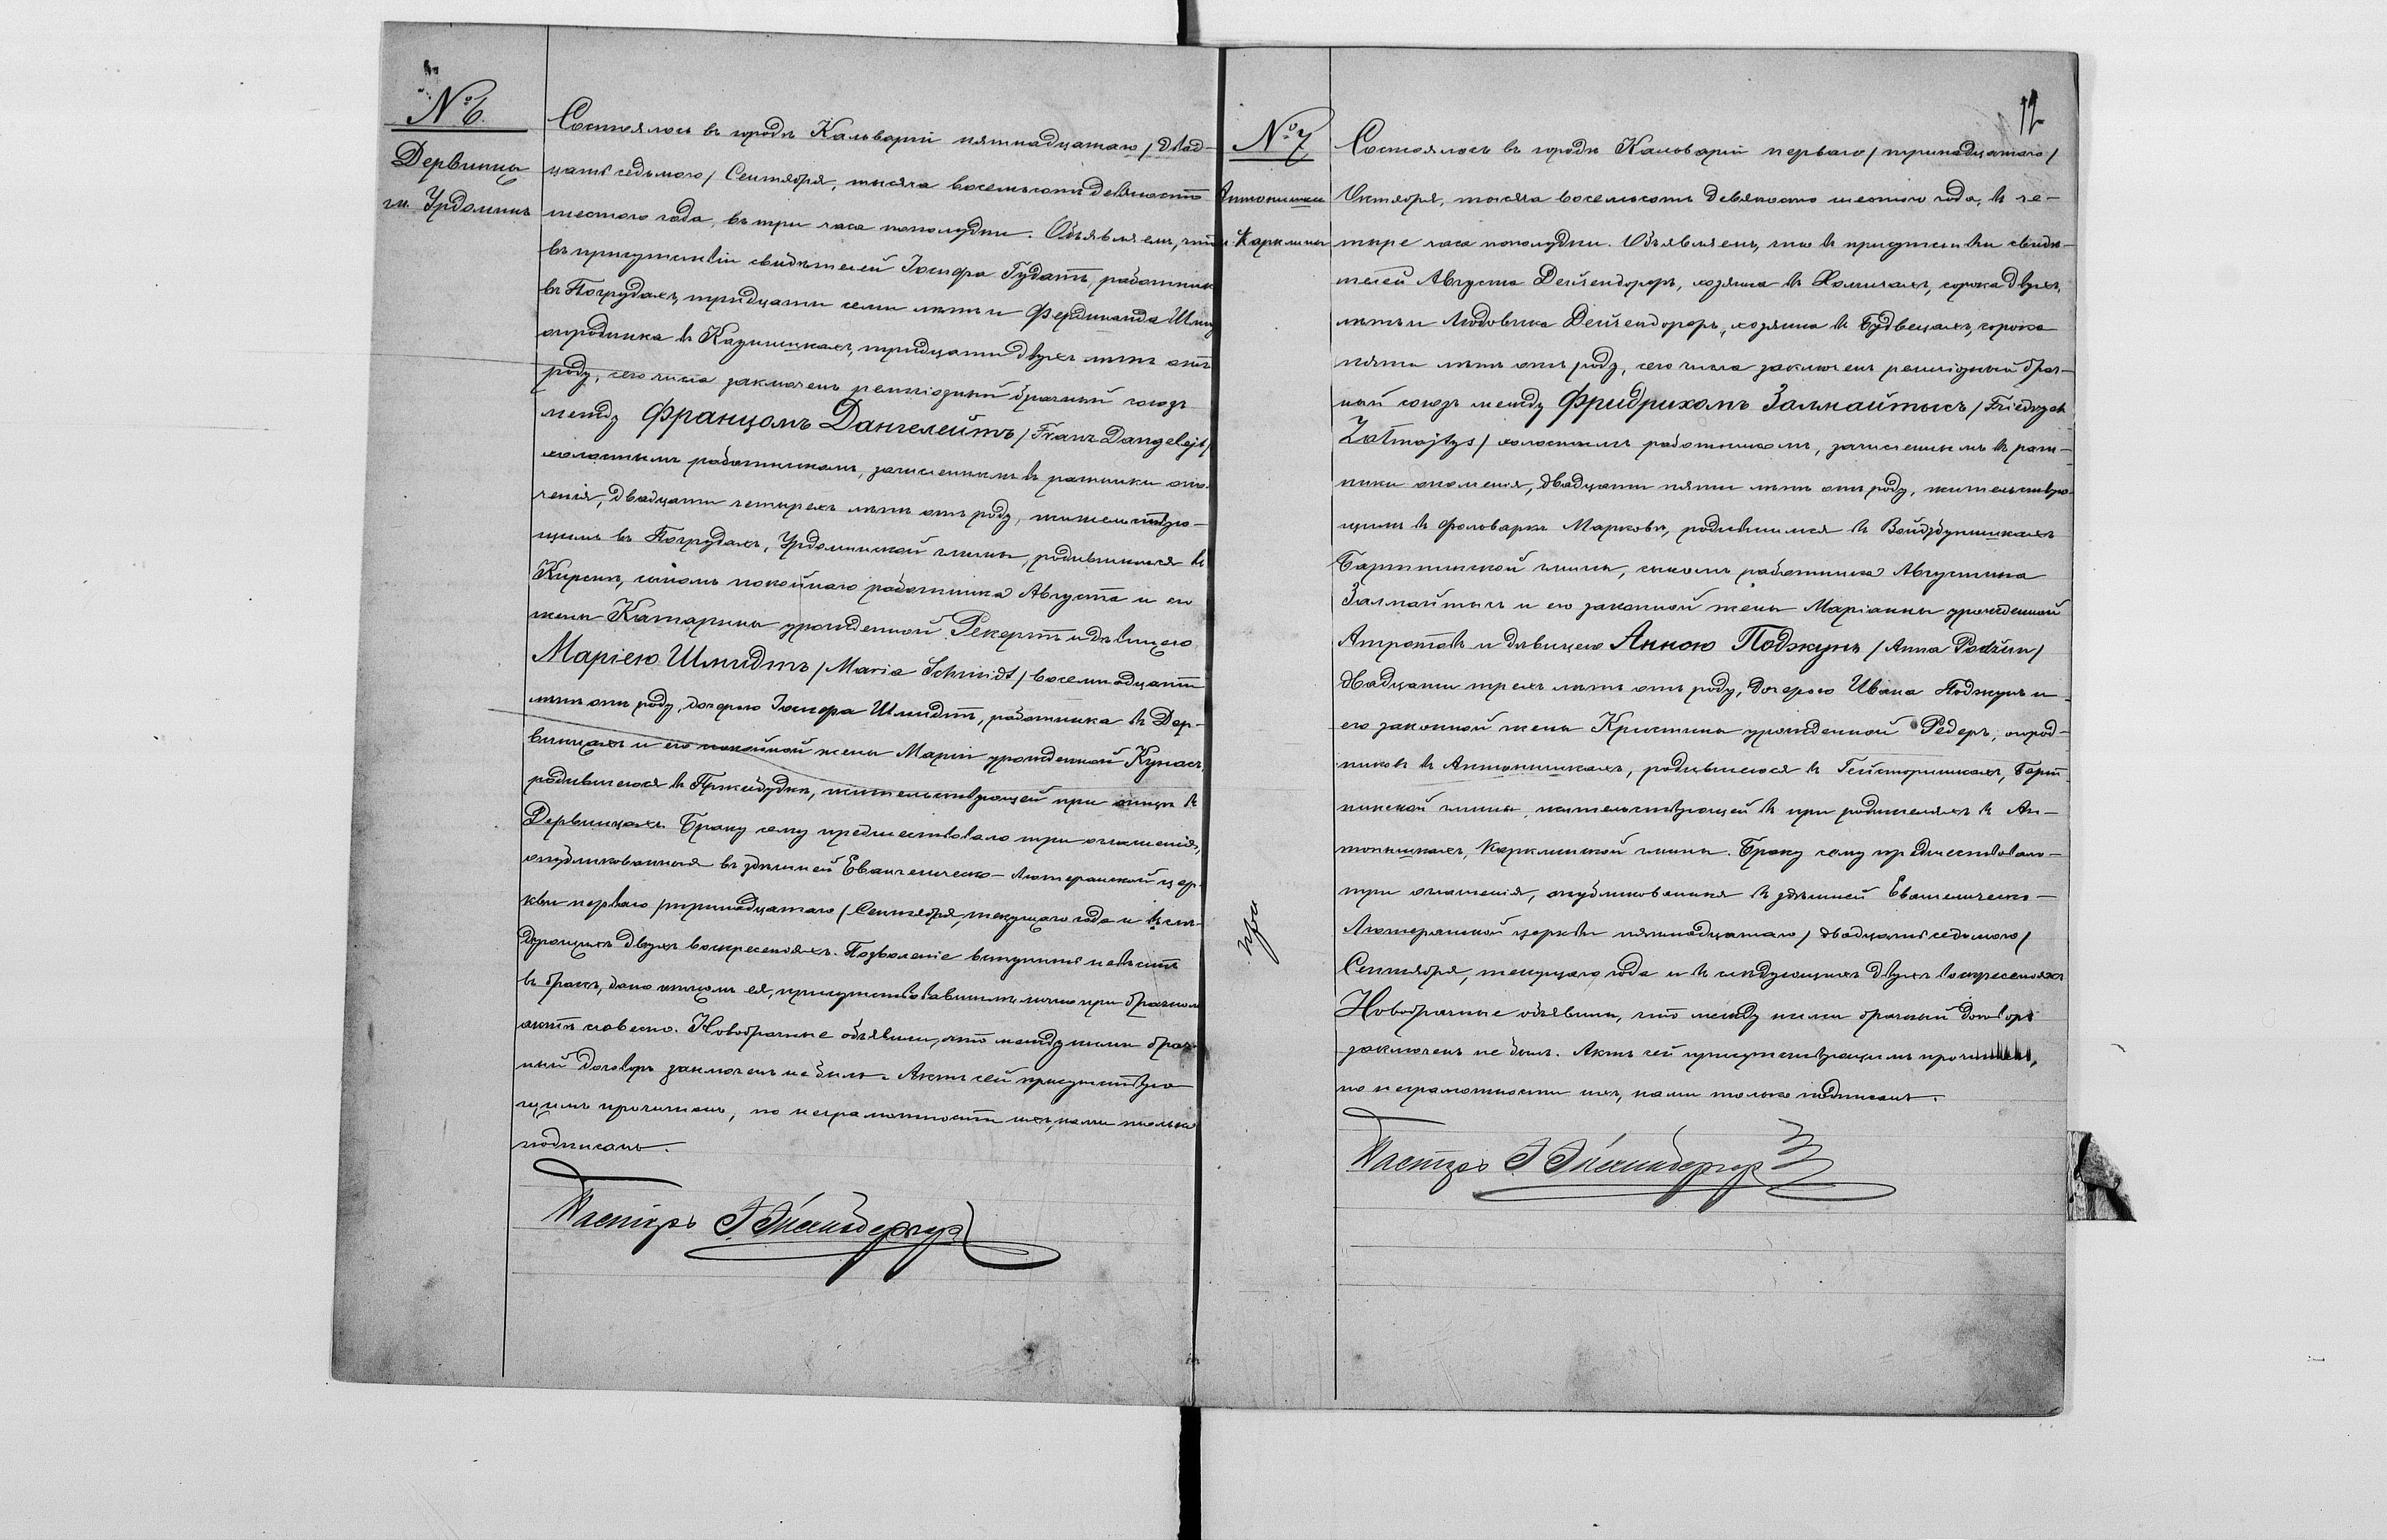 № 6.
Дервинцы
гм. Урдоминъ
Состоялось въ городѣ Кальваріи пятнадцатаго / двад-
цать седьмого / Сентября, тысяча восемьсотъ девяносто
шестого года, въ три часа пополудни. Объявляемъ, что
въ присутствіи свидѣтелей Іосифа Гудатъ, работника
въ Погрудахъ, тридцати семи лѣтъ и Фердинанда
огородника въ Казимишкахъ, тридцати двухъ лѣтъ отъ
роду, сего числа заключенъ религіозный брачный союзъ
между Францомъ Дангелейтъ / Franz Dangelejt /
холостымъ работникомъ, зачисленнымъ въ ратники опол-
ченія, двадцати четырехъ лѣтъ отъ роду, жительствую-
щимъ въ Погрудахъ, Урдоминской гмины, родившимся въ
Кирснѣ, сыномъ покойнаго работника Августа и его
жены Катарины урожденной Рекертъ и дѣвицею
Маріею Шмидтъ / Maria Schmidt / восемнадцати
лѣтъ отъ роду, дочерью Іосифа Шмидтъ, работника въ Дер-
винцахъ и его покойной жены Маріи урожденной Кунасъ,
родившеюся въ жительствующей при отцѣ въ
Дервинцахъ. Браку сему предшествовало три оглашенія,
опубликованныя въ здѣшней Евангелическо-Лютеранской цер-
кви перваго / тринадцатаго / Сентября, текущаго года и въ слѣ-
дующихъ двухъ воскресеніяхъ. Позволеніе вступить невѣстѣ
въ бракъ, дано отцомъ ея, присутствовавшимъ лично при брачномъ
актѣ словесно. Новобрачные объявили, что между ними брач-
ный договоръ заключенъ не былъ. Актъ сей присутствую-
щимъ прочитанъ, по неграмотности ихъ, нами только
подписанъ.
Пасторъ
12
№ 7
Антонишки
г. Карклины
Состоялось въ городѣ Кальваріи перваго / тринадцатаго /
Октября, тысяча восемьсотъ девяносто шестого года, въ че-
тыре часа пополудни. Объявляемъ, что въ присутствіи свидѣ-
телей Августа Дейчендорфъ, хозяина въ сорока двухъ
лѣтъ и Людовика Дейчендорфъ, хозяина въ Будвецахъ, сорока
пяти лѣтъ отъ роду, сего числа заключенъ религіозный брач-
ный союзъ между Фридрихомъ Залмайтысъ / Friedrych
Załmajtys / холостымъ работникомъ, зачисленнымъ въ рат-
ники ополченія, двадцати пяти лѣтъ отъ роду, жительствую-
щимъ въ фольваркѣ Марковѣ, родившимся въ Войдзбунишкахъ
Бартнинской гмины, сыномъ работника Августина
Залмайтысъ и его законной жены Маріанны урожденной
и дѣвицею Анною Поджунъ / Anna Podżun /
двадцати трехъ лѣтъ отъ роду, дочерью Ивана Поджунъ и
его законной жены Кристины урожденной Редеръ, огород-
никовъ въ Антонишкахъ, родившеюся въ Гейсторишкахъ, Барт-
нинской гмины, жительствующей въ при родителяхъ въ Ан-
тонишкахъ, Карклинской гмины. Браку сему предшествовало-
три оглашенія, опубликованныя въ здѣшней Евангелическо-
Лютеранской церкви пятнадцатаго / двадцать седьмого /
Сентября, текущаго года и въ слѣдующихъ двухъ воскресеніяхъ
Новобрачные объявили, что между ними брачный договоръ
заключенъ не былъ. Актъ сей присутствующимъ прочитанъ,
по неграмотности ихъ, нами только подписанъ.
Пасторъ